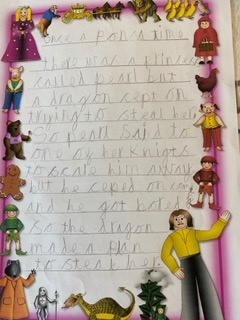 once a pon a time
there was a princess
called pearl but
a dragon cept on
trying to steal her
So pearl said to
one of her knigts
to scare him away
but he ceped on
and he got
so the dragon
made a plan
to steal her